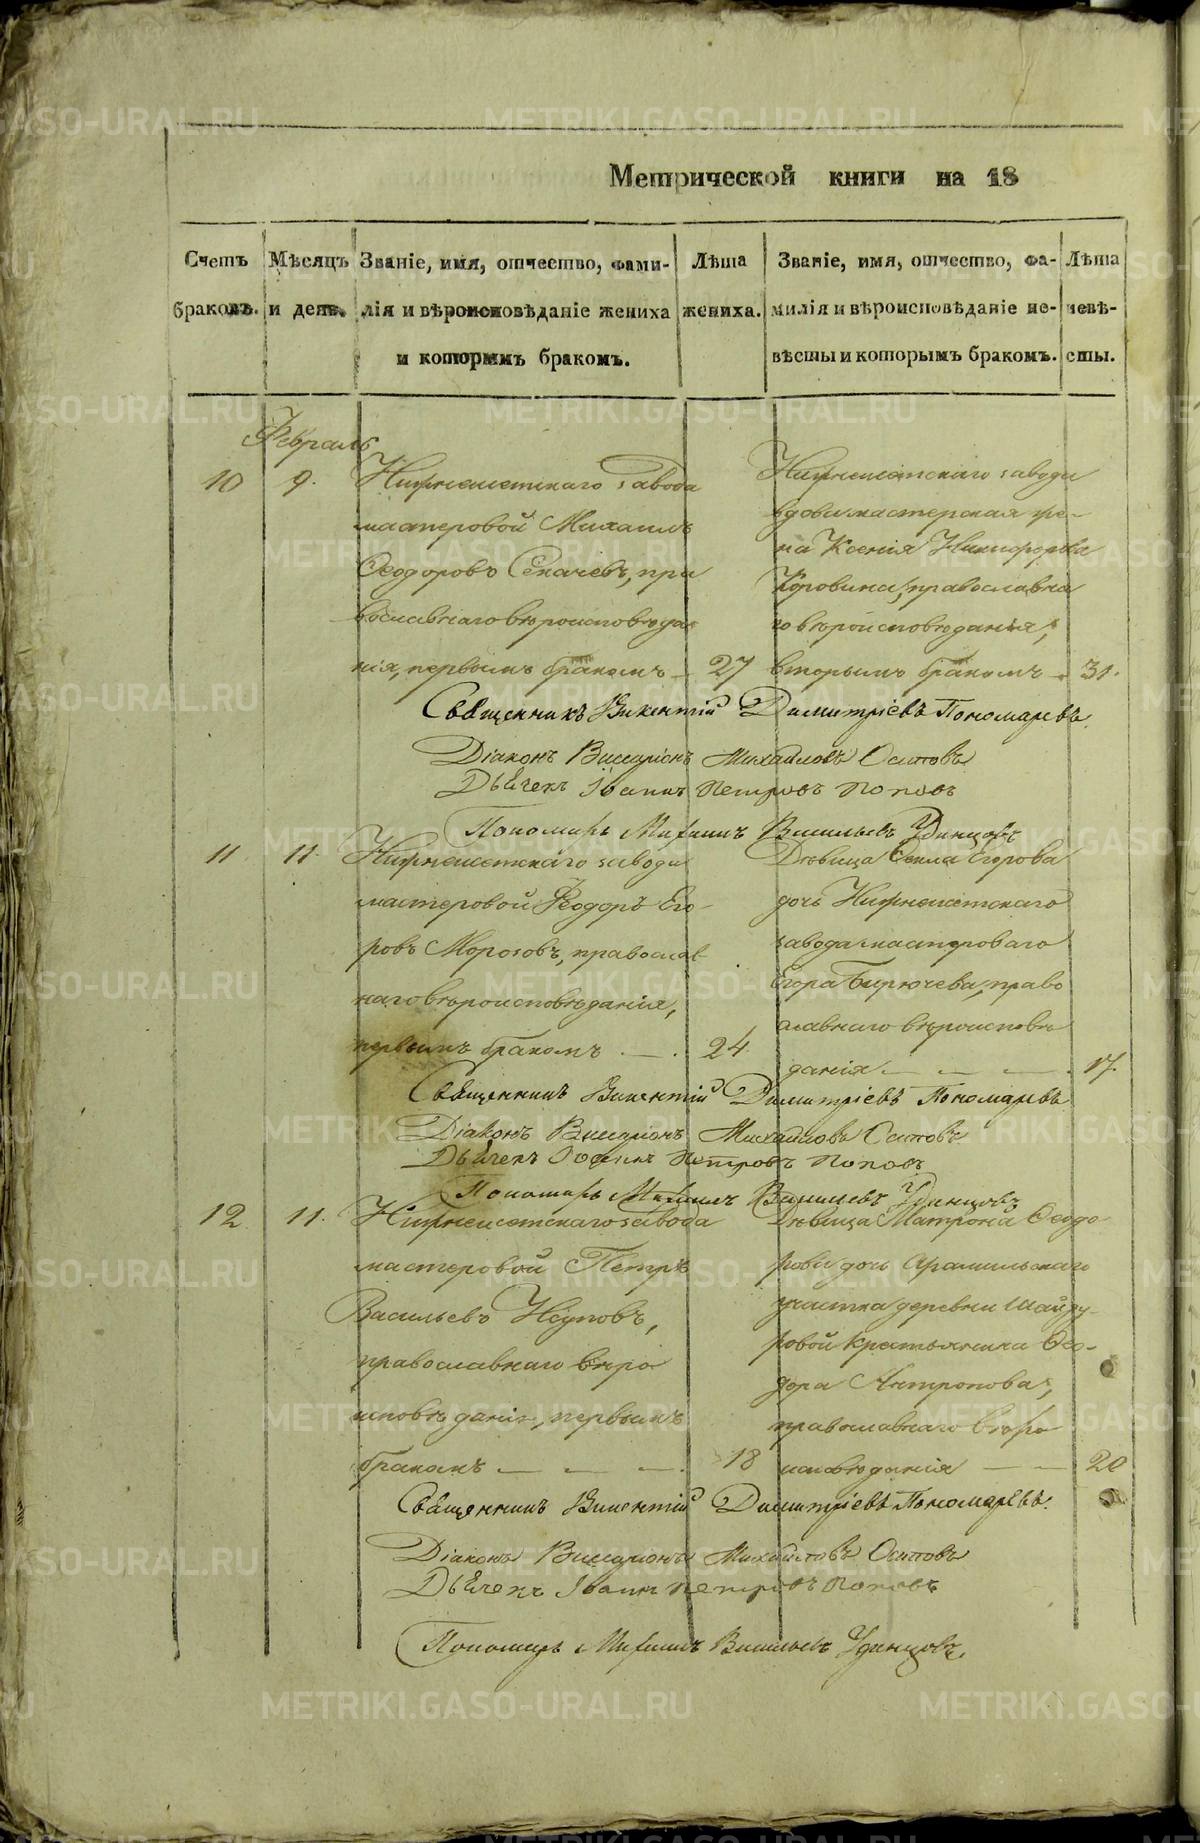 Метрической книги на 18
Счетъ браковъ.
Мѣсяцъ и день.
Званіе, имя, отчество, фами-
лія и вѣроисповѣданіе жениха
и которымъ бракомъ.
Лѣта жениха.
Званіе, имя, отчество, фа-
милія и вѣроисповѣданіе не-
вѣсты и которымъ бракомъ.
Лѣта невѣ-
сты.
Февраль
10
9.
Нижнеисетскаго завода
мастеровой Михаилъ
Ѳеодоровъ Секачевъ, пра
вославнаго вѣроисповѣда
нія, первымъ бракомъ —
27
Нижнеисетскаго завода
вдова мастерская же-
на Ксенія Никифорова
Коровина, православна
го вѣроисповѣданія,
вторымъ бракомъ —
31.
Священникъ Викентій Димитріевъ Пономаревъ.
Діаконъ Виссаріонъ Михайловъ Осиповъ
Дьячекъ Іоаннъ Петровъ Поповъ
Пономарь Михаилъ Васильевъ Удинцовъ
11
11.
Нижнеисетскаго завода
мастеровой Ѳеодоръ Его-
ровъ Морозовъ, православ
наго вѣроисповѣданія,
первымъ бракомъ — .
24.
Дѣвица Ѳекла Егорова
дочь Нижнеисетскаго
завода мастероваго
Егора Бирючева, право
славнаго вѣроисповѣ
данія — — — .
17.
Священникъ Викентій Димитріевъ Пономаревъ
Діаконъ Виссаріонъ Михайловъ Осиповъ
Дьячекъ Іоаннъ Петровъ Поповъ
Пономарь Михаилъ Васильевъ Удинцовъ
12
11.
Нижнеисетскаго завода
мастеровой Петръ
Васильевъ
православнаго вѣро
исповѣданія, первымъ
бракомъ — — — .
18
Дѣвица Матрона Ѳеодо
рова дочь Арамильскаго
участка деревни Шайду-
ровой крестьянина Ѳео-
дора Антропова,
православнаго вѣро
исповѣданія — —
20
Священникъ Викентій Димитріевъ Пономаревъ.
Діаконъ Виссаріонъ Михайловъ Осиповъ
Дьячекъ Іоаннъ Петровъ Поповъ
Пономарь Михаилъ Васильевъ Удинцовъ.
METRIKI.GASO-URAL.RU